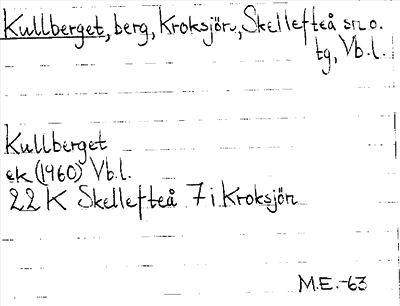 Kullberget, berg, Kroksjön, Skellefteå sn o.
tg, Vb.l.
Kullberget
ek (1960) Vb.l.
22 K Skellefteå 7 i Kroksjön
M.E.-63